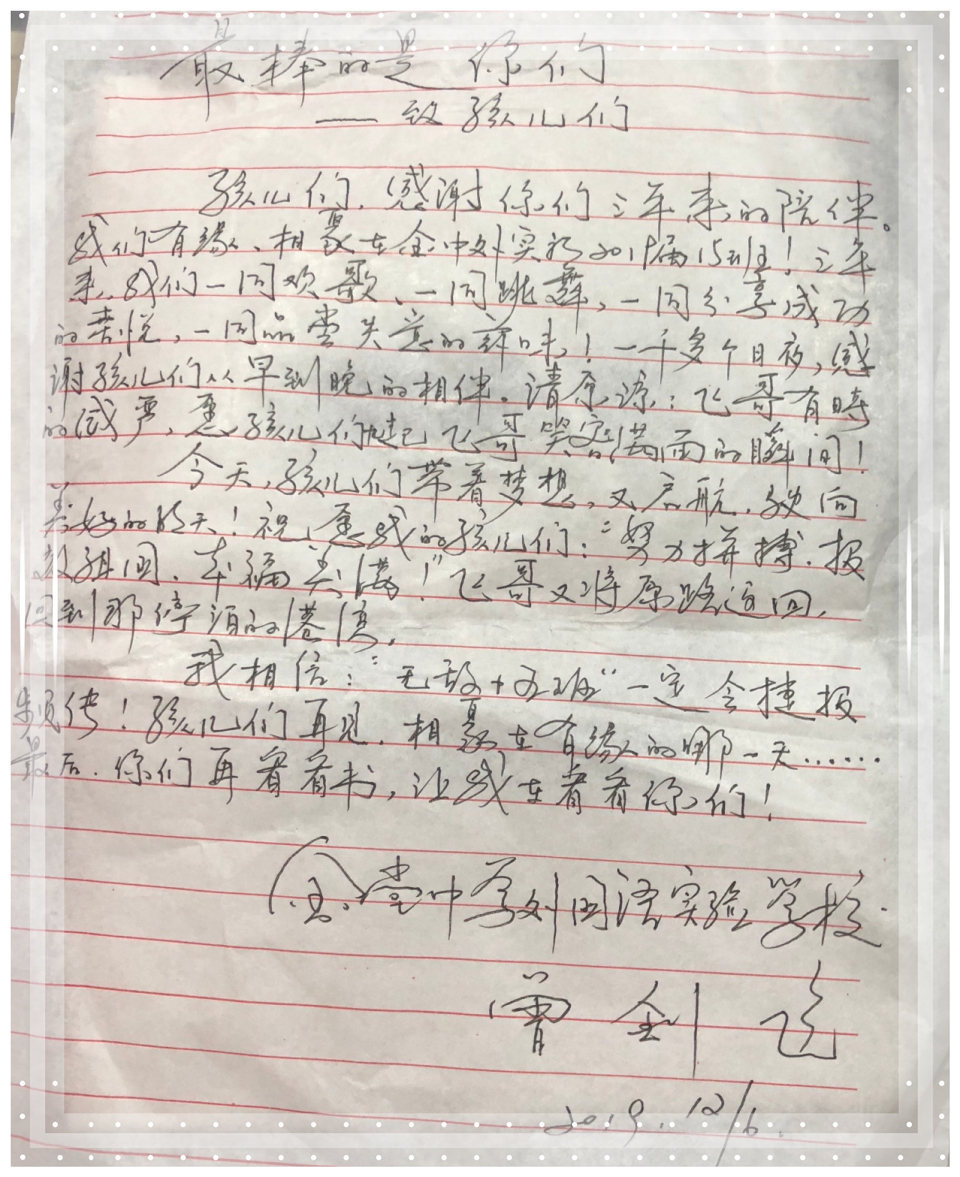 最棒的是你们
——致孩儿们
孩儿们,感谢你们三年来的陪伴。
我们有缘,相聚在金中外实验2019届15班！三年
来,我们一同欢歌、一同跳舞,一同分享成功
的喜悦,一同品尝失意的辞味！一千多个日夜,感
谢孩儿们从早到晚的相伴。请原谅：飞哥有时
的威严,愿孩儿们忆起飞哥笑容满面的瞬间！
今天,孩儿们带着梦想,又启航,驶向
美好的明天！祝愿我的孩儿们：“努力拼搏,报
效祖国,幸福美满！”飞哥又将原路返回,
回到那停泊的港湾,
我相信：“无敌十五班”一定会捷报
频传！孩儿们再见,相聚在有缘的哪一天……
最后,你们再看看书,让我在看看你们！
金堂中学外国语实验学校
曾剑飞
2019.12/6.